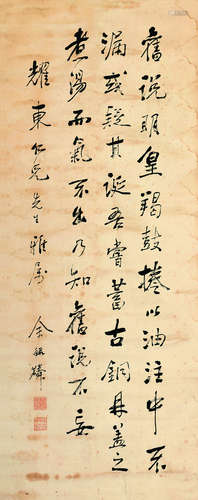 舊說明皇羯鼓捲以油注中不
漏或疑其誕吾嘗蓄古銅鼎蓋之
煮湯而氣不出乃知舊說不妄
耀東仁兄先生雅屬
余紹